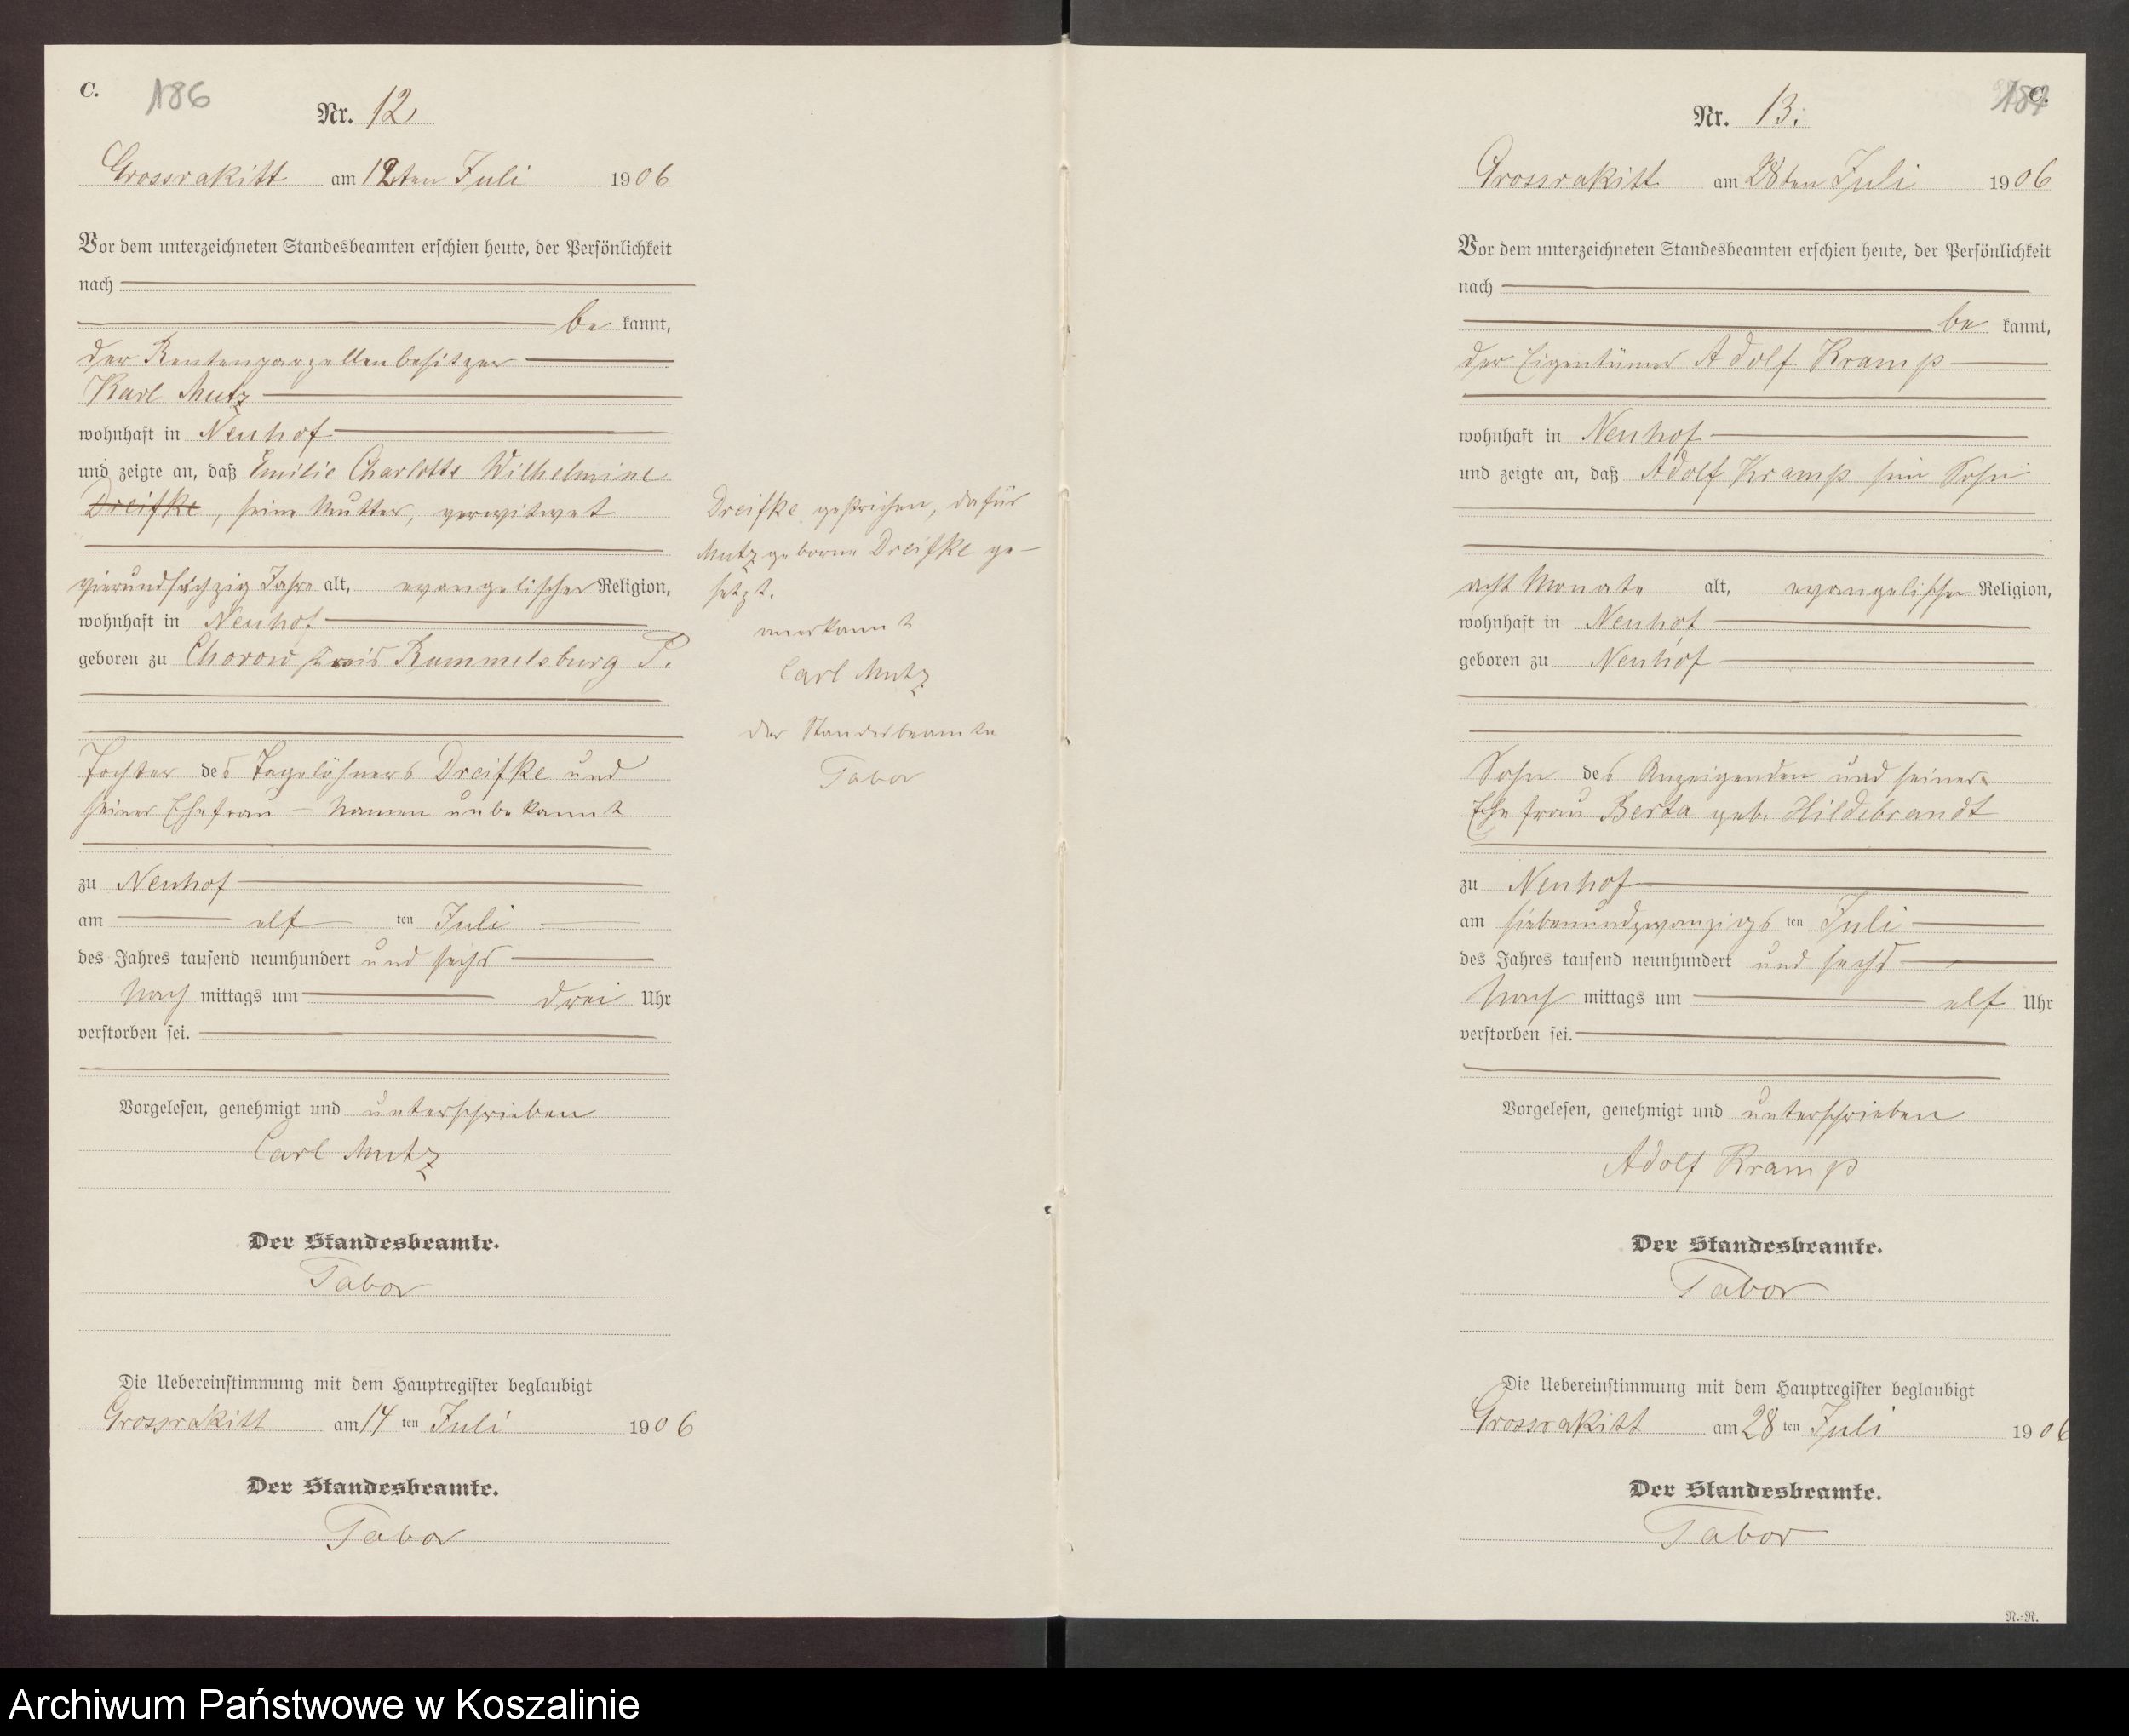 C.
186
Nr. 12
Grossrakitt am 12ten Juli 1906
Vor dem unterzeichneten Standesbeamten erschien heute, der Persönlichkeit
nach
be kannt,
der Rentenparzellenbesitzer
Karl Mutz
wohnhaft in Neuhof
und zeigte an, daß Emilie Charlotte Wilhelmine
Dreifke, seine Mutter, verwitwet
vierundsechzig Jahre alt, evangelischer Religion,
wohnhaft in Neuhof
geboren zu Chorow Kreis Rummelsburg P.
Tochter des Tagelöhners Dreifke und
seiner Ehefrau – Namen unbekannt
zu Neuhof
am elf ten Juli
des Jahres tausend neunhundert und sechs
Nach mittags um drei Uhr
verstorben sei.
Vorgelesen, genehmigt und unterschrieben
Carl Mutz
Der Standesbeamte.
Tabor
Die Uebereinstimmung mit dem Hauptregister beglaubigt
Grossrakitt am 14 ten Juli 1906
Der Standesbeamte.
Tabor
Dreifke gestrichen, dafür
Mutz geborne Dreifke ge-
setzt.
anerkannt
Carl Mutz
der Standesbeamte
Tabor
C.
187
Nr. 13.
Grossrakitt am 28ten Juli 1906
Vor dem unterzeichneten Standesbeamten erschien heute, der Persönlichkeit
nach
be kannt,
der Eigentümer Adolf Kramp
wohnhaft in Neuhof
und zeigte an, daß Adolf Kramp sein Sohn
acht Monate alt, evangelischer Religion,
wohnhaft in Neuhof
geboren zu Neuhof
Sohn des Anzeigenden und seiner
Ehefrau Berta geb. Hildebrandt
zu Neuhof
am siebenundzwanzigs ten Juli
des Jahres tausend neunhundert und sechs
Nach mittags um elf Uhr
verstorben sei.
Vorgelesen, genehmigt und unterschrieben
Adolf Kramp
Der Standesbeamte.
Tabor
Die Uebereinstimmung mit dem Hauptregister beglaubigt
Grossrakitt am 28 ten Juli 1906
Der Standesbeamte.
Tabor
N.-R.
Archiwum Państwowe w Koszalinie